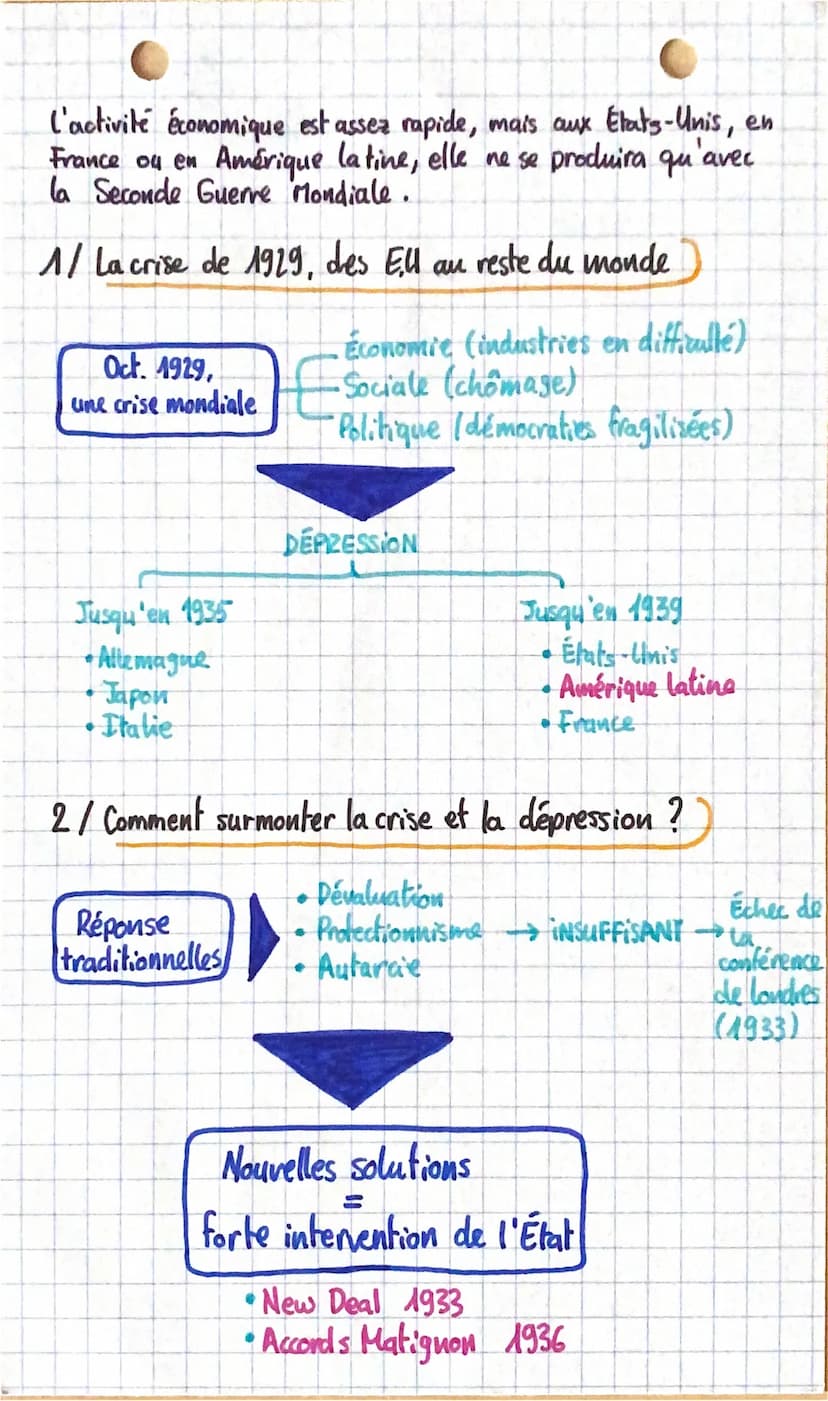 L'activité économique est assez rapide, mais aux États-Unis, en
France ou en Amérique latine, elle ne se produira qu'avec
la Seconde Guerre Mondiale.
1/ La crise de 1929, des EU au reste du monde
Oct. 1929,
une crise mondiale
Économie (industries en difficulté)
Sociale (chômage)
Politique (démocraties fragilisées)
DÉPRESSION
Jusqu'en 1935
• Allemagne
• Japon
• Italie
Jusqu'en 1939
• États-Unis
• Amérique latine
• France
2/ Comment surmonter la crise et la dépression ?
Réponse
traditionnelles
• Dévaluation
• Protectionnisme → INSUFFISANT →
• Autarcie
Échec de
la
conférence
de Londres
(1933)
Nouvelles solutions
=
forte intervention de l'État
• New Deal 1933
• Accords Matignon 1936